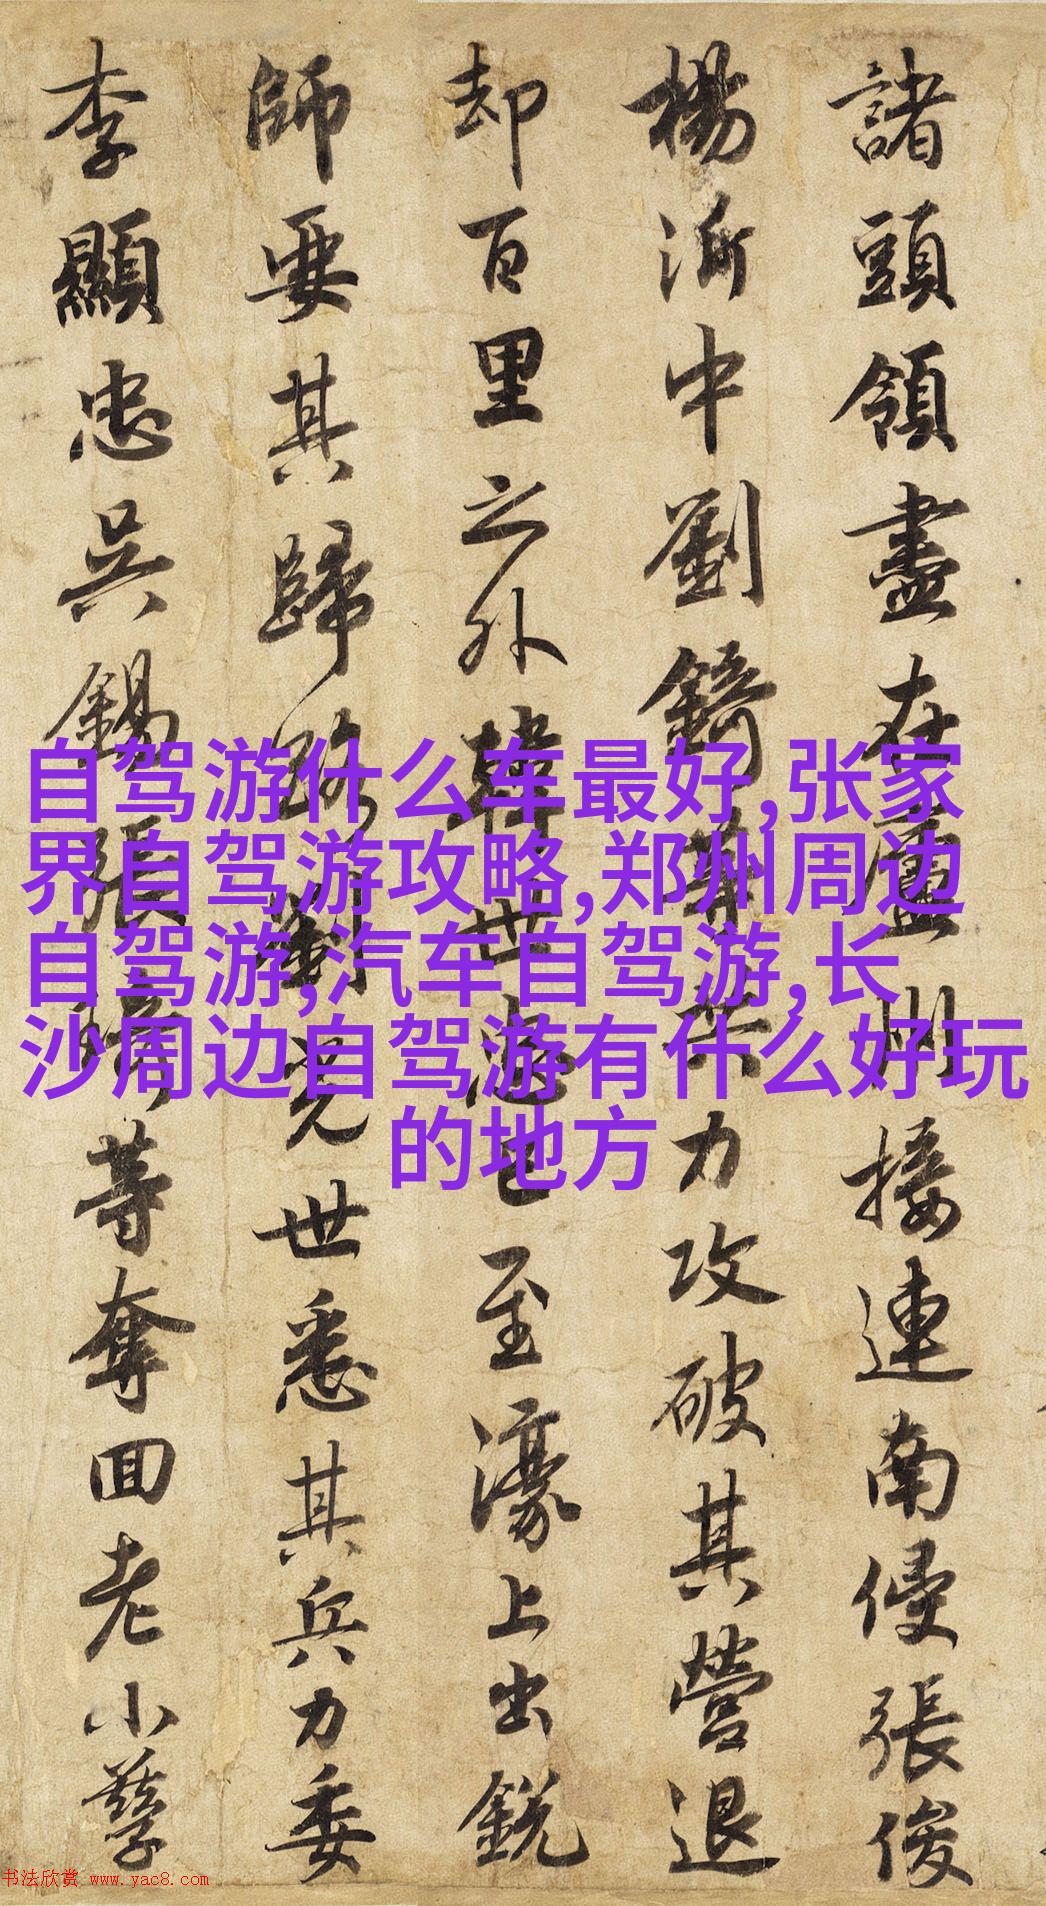 諸頭領盡在廬州接連南侵張俊
楊沂中劉錡等共力攻破其營退
却百里之外韓世忠已至濠上出銳
師要其歸路劉光世悉其兵力委
李顯忠吳錫張琦等奪回老小孳
自驾游什么车最好,张家
界自驾游攻略,郑州周边
自驾游,汽车自驾游,长
沙周边自驾游有什么好玩
的地方
书法欣赏 www.yac8.com